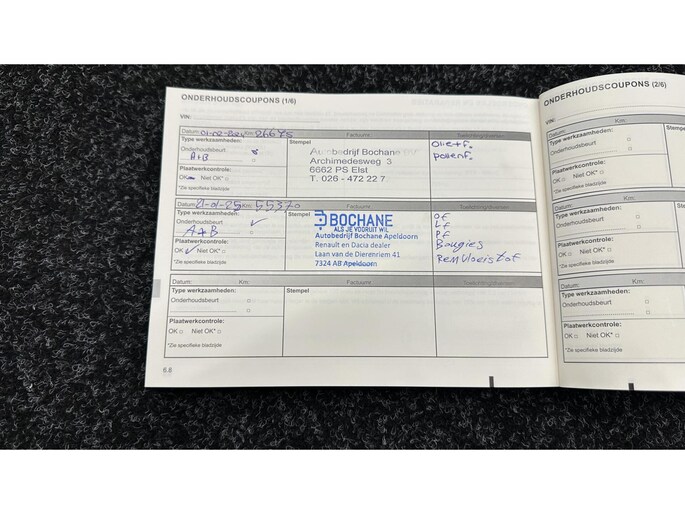 ONDERHOUDSCOUPONS (1/6)
VIN:
Datum: 01-02-2024 Km: 26675 Factuurnr. Toelichting/diversen
Type werkzaamheden: Stempel Olie+f.
Onderhoudsbeurt Autobedrijf Bochane
A+B Archimedesweg 3 pollenf.
6662 PS Elst
Plaatwerkcontrole: T. 026 - 472 22 7
OK Niet OK*
*Zie specifieke bladzijde
Datum: 21-01-25 Km: 55370 Factuurnr. Toelichting/diversen
Type werkzaamheden: Stempel BOCHANE OF
Onderhoudsbeurt ALS JE VOORUIT WIL LF
A+B Autobedrijf Bochane Apeldoorn PF
Plaatwerkcontrole: Renault en Dacia dealer Bougies
OK Niet OK* Laan van de Dierenriem 41 Remvloeistof
*Zie specifieke bladzijde 7324 AB Apeldoorn
Datum: Km: Factuurnr. Toelichting/diversen
Type werkzaamheden: Stempel
Onderhoudsbeurt
Plaatwerkcontrole:
OK Niet OK*
*Zie specifieke bladzijde
6.6
ONDERHOUDSCOUPONS (2/6)
VIN:
Datum: Km:
Type werkzaamheden:
Onderhoudsbeurt
Plaatwerkcontrole:
OK Niet OK*
*Zie specifieke bladzijde
Datum: Km:
Type werkzaamheden:
Onderhoudsbeurt
Plaatwerkcontrole:
OK Niet OK*
*Zie specifieke bladzijde
Datum: Km:
Type werkzaamheden:
Onderhoudsbeurt
Plaatwerkcontrole:
OK Niet OK*
*Zie specifieke bladzijde